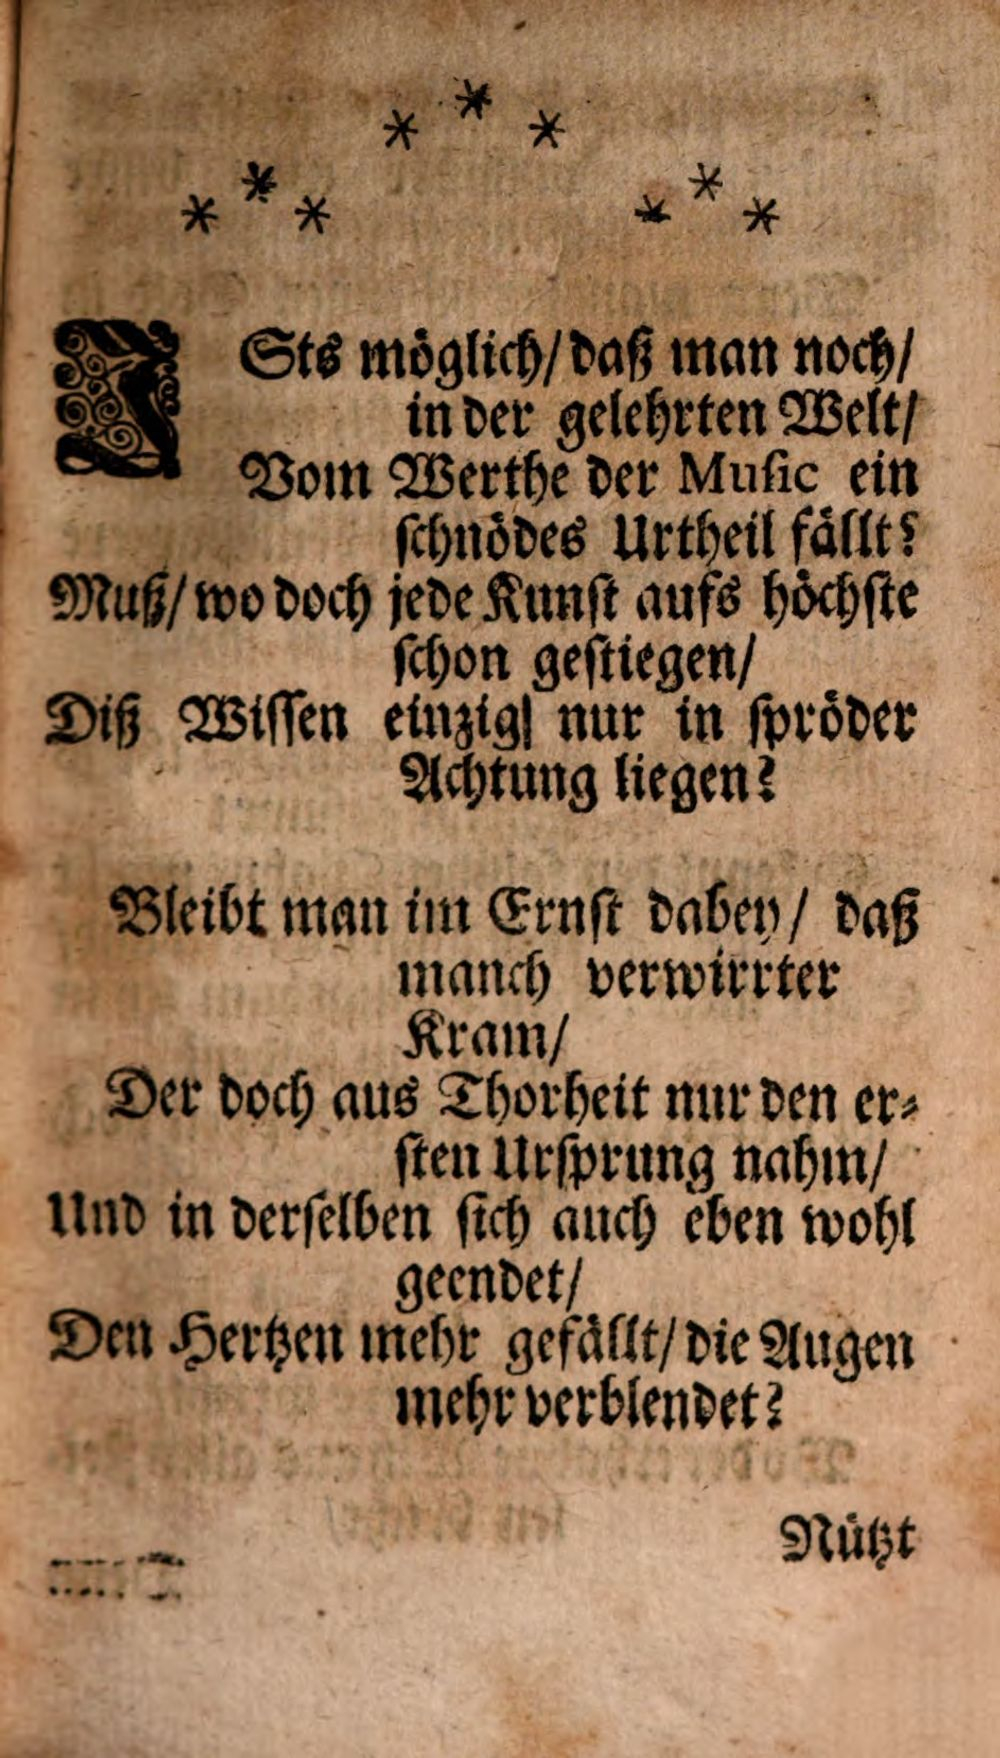 * * *
* * * * * *
ISts möglich/ daß man noch/
in der gelehrten Welt/
Vom Werthe der Music ein
schnödes Urtheil fällt?
Muß/ wo doch jede Kunst aufs höchste
schon gestiegen/
Diß Wissen einzig/ nur in spröder
Achtung liegen?
Bleibt man im Ernst dabey/ daß
manch verwirrter
Kram/
Der doch aus Thorheit nur den er-
sten Ursprung nahm/
Und in derselben sich auch eben wohl
geendet/
Den Hertzen mehr gefällt/ die Augen
mehr verblendet?
Nützt